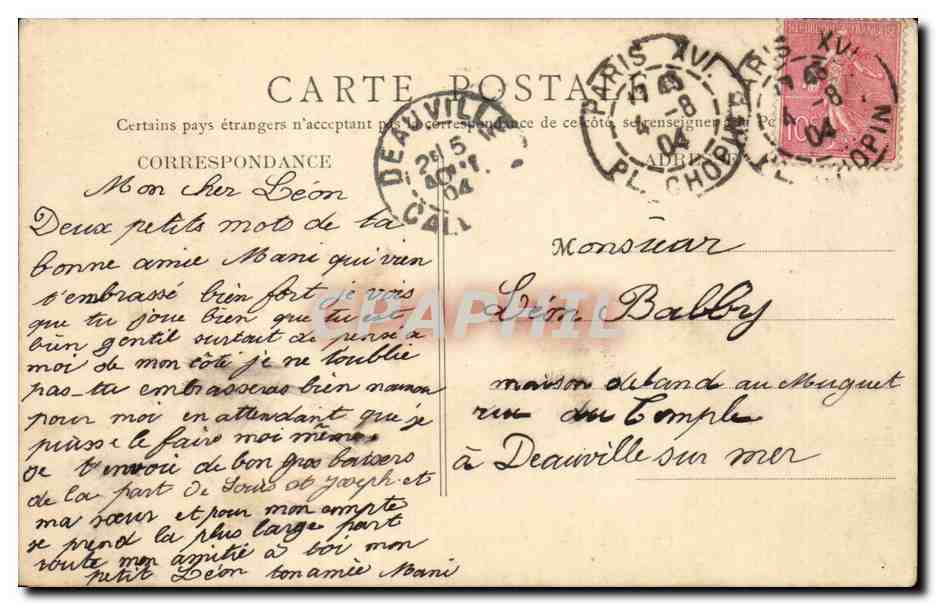 CARTE POSTALE
Certains pays étrangers n'acceptent pas la correspondance de ce côté, se renseigner
CORRESPONDANCE
ADRESSE
PARIS XVI.
4 -8
04
PL. CHOPIN
PARIS XVI.
4 -8
04
PL. CHOPIN
REPUBLIQUE FRANÇAISE
10c
DEAUVILLE
2E 5
AOUT
04
CALV
Mon cher Léon
Deux petits mots de ta
bonne amie Mani qui vien
t'embrassé bien fort je vois
que tu joue bien que tu est
bien gentil surtout de pensé a
moi de mon côté je ne t'oublie
pas_tu embrasseras bien maman
pour moi en attendant que je
puisse le faire moi même.
Je t'envoie de bon gros baisers
de la part de Louis et Joseph et
ma sœur et pour mon compte
je prend la plus large part
toute mon amitié à toi mon
petit Léon ton amie Mani
Monsieur
Léon Balby
maison deland au Muguet
rue du Temple
à Deauville sur mer
CPAPHIL